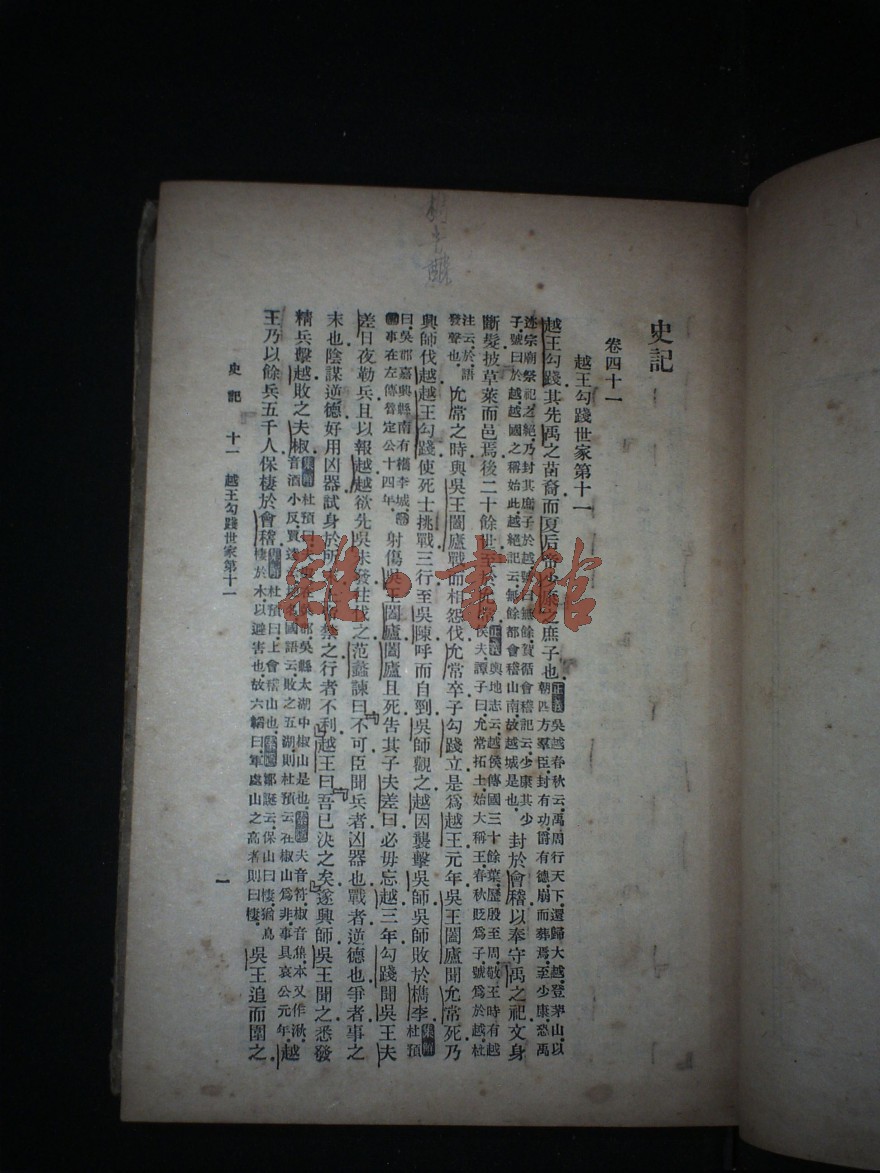 史記
卷四十一
越王勾踐世家第十一
越王勾踐其先禹之苗裔而夏后帝少康之庶子也正義吳越春秋云禹周行天下還歸大越登茅山以
朝四方羣臣封有功爵有德崩而葬焉至少康恐禹
迹宗廟祭祀之絕乃封其庶子於越號曰無餘賀循會稽記云少康其少
子號曰於越越國之稱始此越絕記云無餘都會稽山南故越城是也封於會稽以奉守禹之祀文身
斷髮披草萊而邑焉後二十餘世至於允常正義輿地志云越侯傳國三十餘葉歷殷至周敬王時有越
侯夫譚子曰允常拓土始大稱王春秋貶為子號為於越杜
注云於語
發聲也允常之時與吳王闔廬戰而相怨伐允常卒子勾踐立是為越王元年吳王闔廬聞允常死乃
興師伐越越王勾踐使死士挑戰三行至吳陳呼而自剄吳師觀之越因襲擊吳師吳師敗於檇李集解杜預
曰吳郡嘉興縣南有檇李城
事在左傳魯定公十四年射傷吳王闔廬闔廬且死告其子夫差曰必毋忘越三年勾踐聞吳王夫
差日夜勒兵且以報越越欲先吳未發往伐之范蠡諫曰不可臣聞兵者凶器也戰者逆德也爭者事之
末也陰謀逆德好用凶器試身於所末禁之行者不利越王曰吾已決之矣遂興師吳王聞之悉發
精兵擊越敗之夫椒集解杜預曰吳郡吳縣太湖中椒山是也索隱夫音符椒音焦本又作湫
音酒小反賈逵云地名國語云敗之五湖則杜預云在椒山為非事具哀公元年越
王乃以餘兵五千人保棲於會稽集解杜預曰上會稽山也索隱鄒誕云保山曰棲猶鳥
棲於木以避害也故六韜曰軍處山之高者則曰棲吳王追而圍之
史記 十一 越王勾踐世家第十一 一
雜·書館